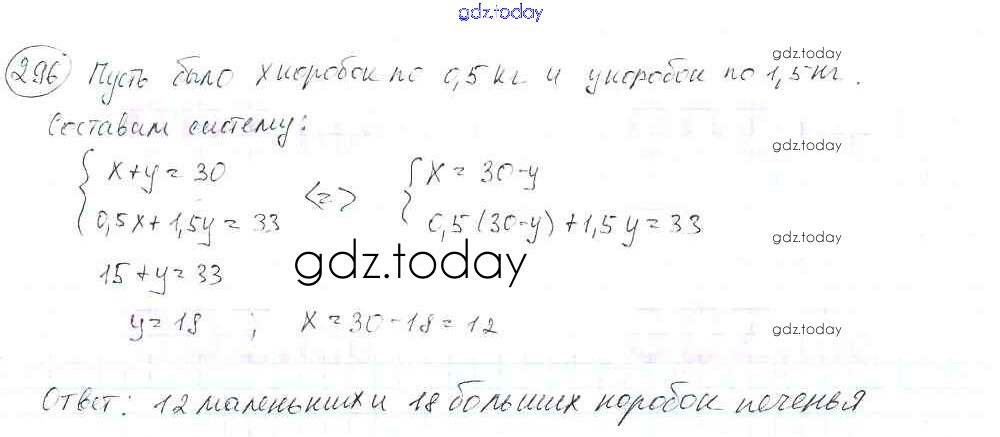 gdz.today
296 Пусть было x коробок по 0,5 кг и y коробок по 1,5 кг.
gdz.today
Составим систему:
gdz.today
{ x + y = 30 <=> { x = 30 - y
0,5x + 1,5y = 33 0,5(30-y) + 1,5y = 33
gdz.today
15 + y = 33
gdz.today
y = 18 ; x = 30 - 18 = 12
gdz.today
Ответ: 12 маленьких и 18 больших коробок печенья